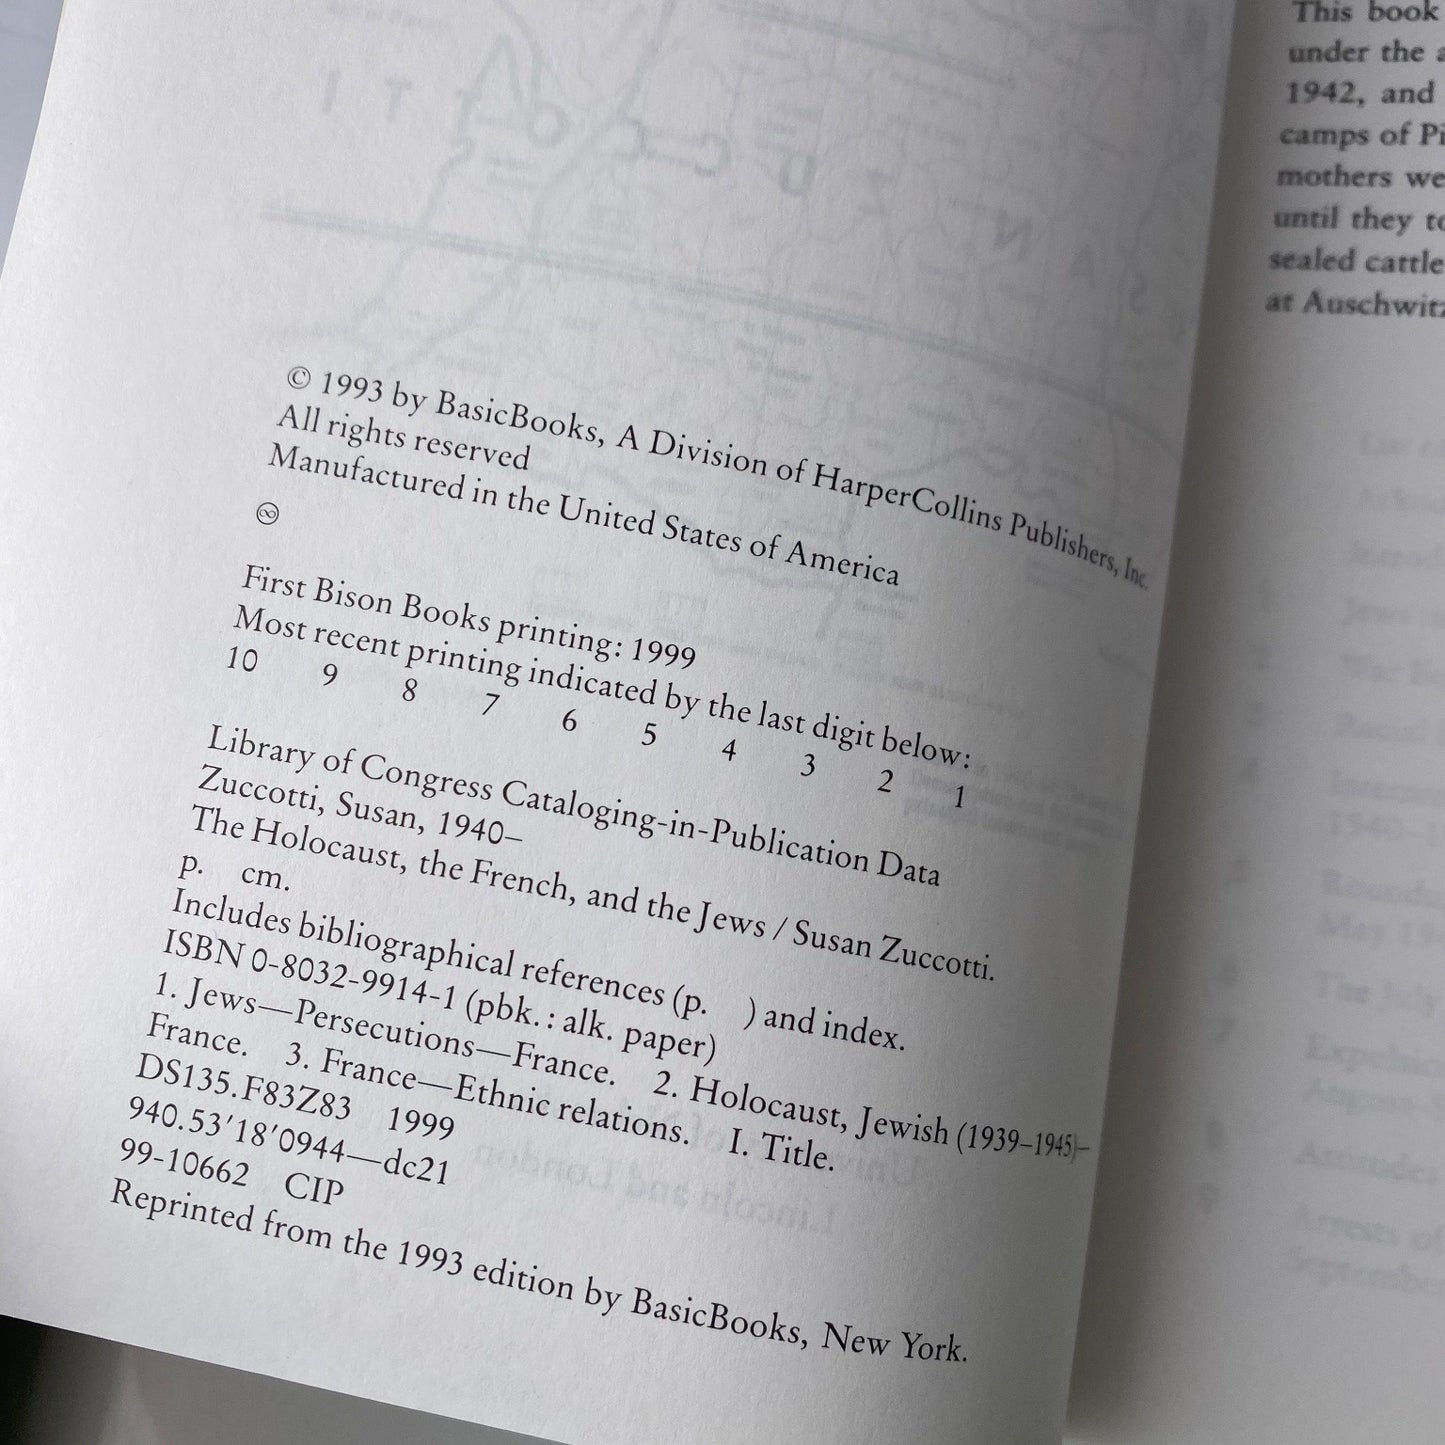 © 1993 by BasicBooks, A Division of HarperCollins Publishers, Inc.
All rights reserved
Manufactured in the United States of America
♾
First Bison Books printing: 1999
Most recent printing indicated by the last digit below:
10 9 8 7 6 5 4 3 2 1
Library of Congress Cataloging-in-Publication Data
Zuccotti, Susan, 1940–
The Holocaust, the French, and the Jews / Susan Zuccotti.
p. cm.
Includes bibliographical references (p. ) and index.
ISBN 0-8032-9914-1 (pbk.: alk. paper)
1. Jews—Persecutions—France. 2. Holocaust, Jewish (1939–1945)–
France. 3. France—Ethnic relations. I. Title.
DS135.F83Z83 1999
940.53′18′0944—dc21
99-10662 CIP
Reprinted from the 1993 edition by BasicBooks, New York.
This book
under the
1942, and
camps of
mothers
until they
sealed cattle
at Auschwitz